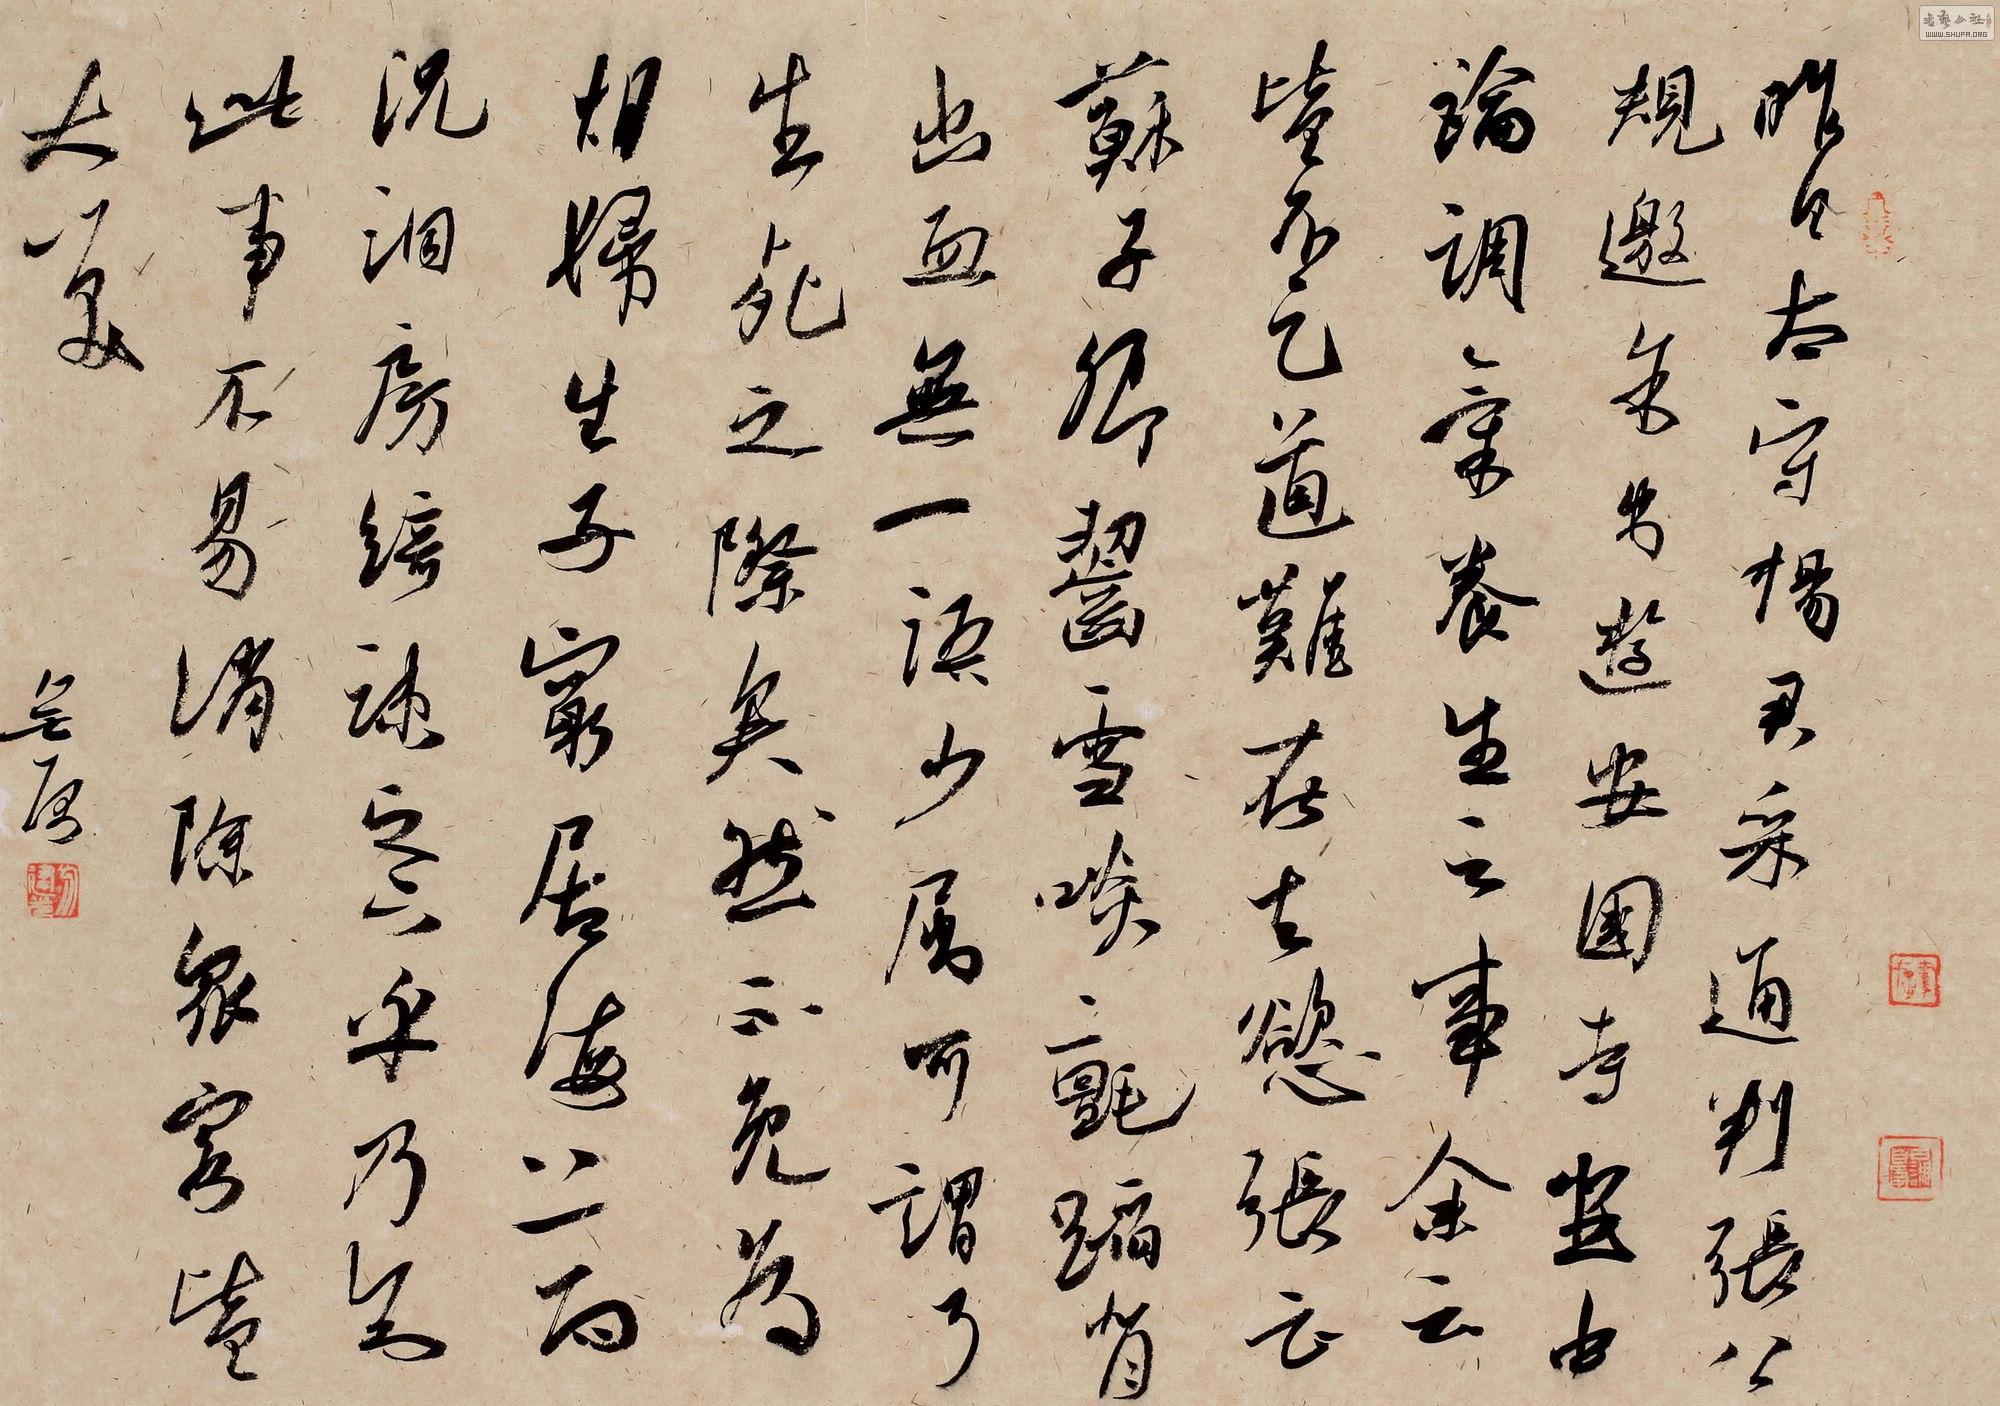 昨日太守楊君采通判張公
規邀余出遊安國寺坐中
論調氣養生之事余云
皆不足道難在去慾張云
蘇子卿齧雪啖氈蹈背
出血無一語少屈可謂了
生死之際矣然不免為
胡婦生子窮居海上而
況洞房綺疏之下乎乃知
此事不易消除眾客皆
大笑
書藝公社
WWW.SHUFA.ORG